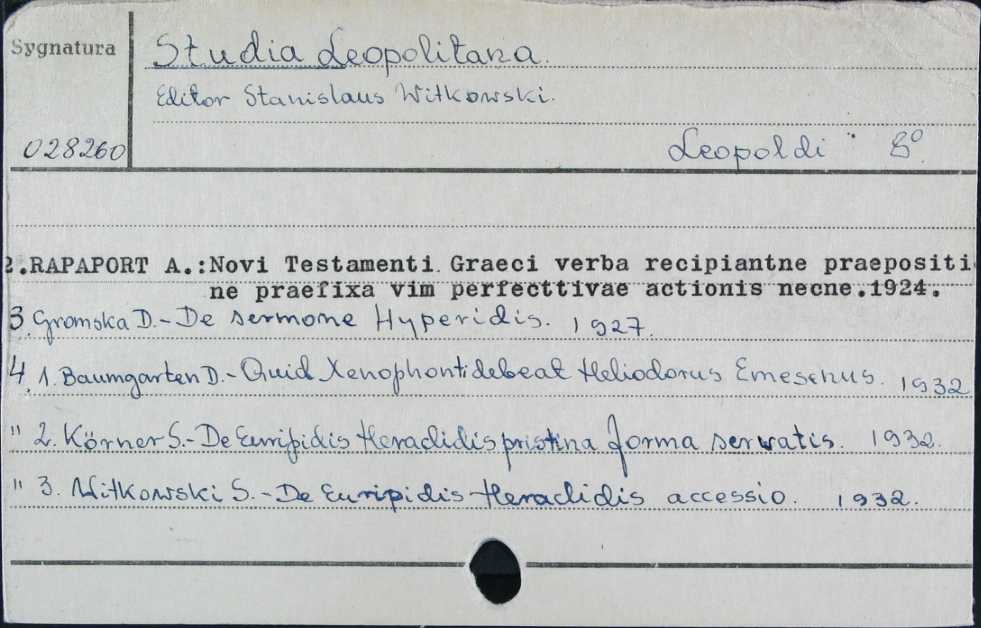 Sygnatura
Studia Leopolitana.
Editor Stanislaus Witkowski.
028260
Leopoldi 8°.
2.RAPAPORT A.:Novi Testamenti Graeci verba recipiantne praepositi
ne praefixa vim perfecttivae actionis necne.1924.
3. Gromska D.-De sermone Hyperidis. 1927.
4. 1. Baumgarten D.-Quid Xenophonti debeat Heliodorus Emesenus. 1932
" 2. Körner S.-De Euripidis Heraclidis pristina forma servatis. 1932.
" 3. Witkowski S.-De Euripidis Heraclidis accessio. 1932.